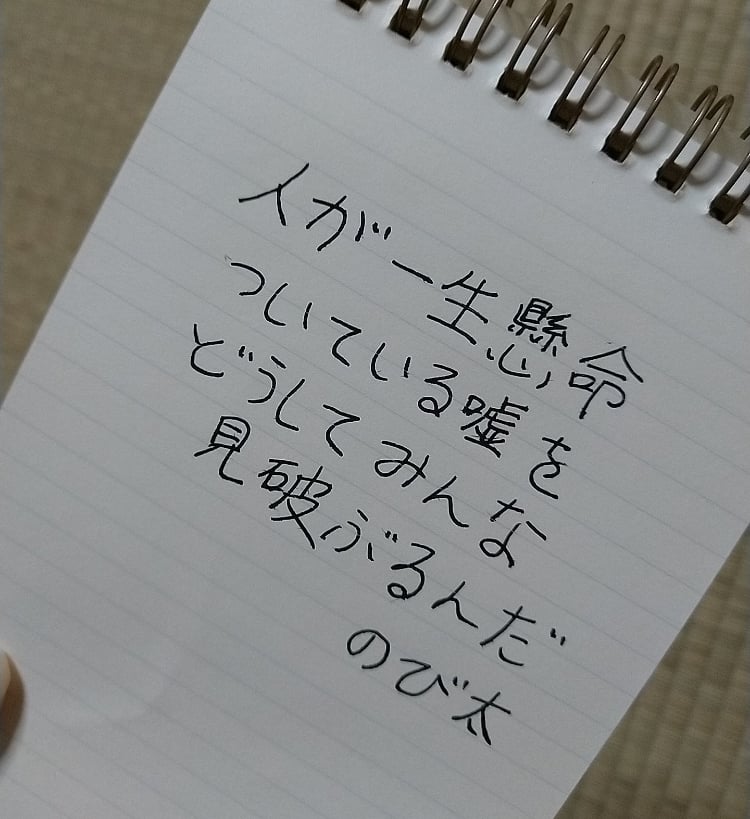 人が一生懸命
ついている嘘を
どうしてみんな
見破ぶるんだ
のび太